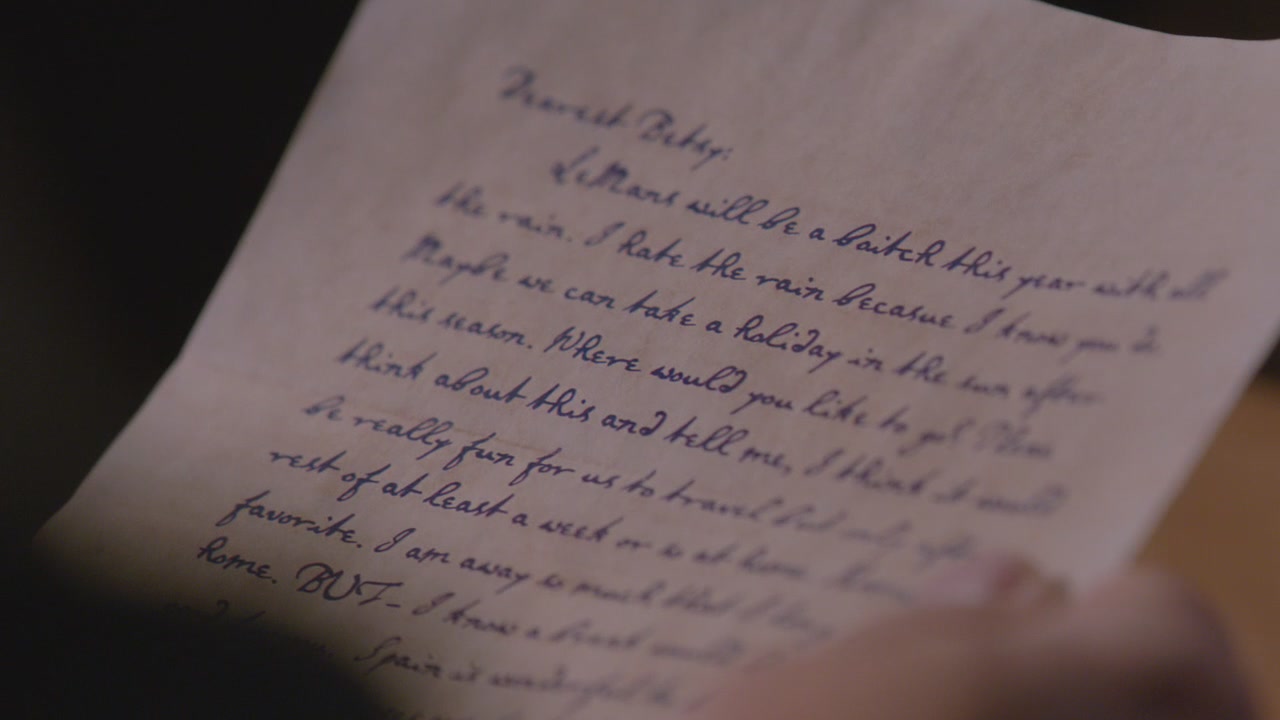 Dearest Betsy:
LeMans will be a baitch this year with all
the rain. I hate the rain becasue I know you do.
Maybe we can take a holiday in the sun after
this season. Where would you like to go?
think about this and tell me, I think it would
be really fun for us to travel but only after
rest of at least a week or so at home.
favorite. I am away so much that I
home. BUT- I know a break would
Spain is wonderful